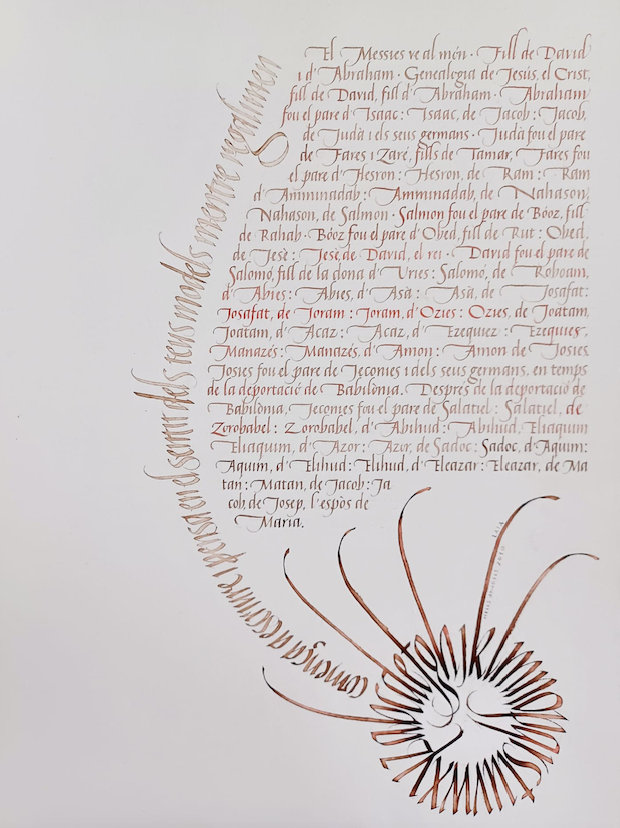 El Messies ve al món · Fill de David
i d'Abraham · Genealogia de Jesús, el Crist,
fill de David, fill d'Abraham · Abraham
fou el pare d'Isaac : Isaac, de Jacob : Jacob,
de Judà i els seus germans · Judà fou el pare
de Fares i Zarè, fills de Tamar, Fares fou
el pare d'Hesron : Hesron, de Ram : Ram
d'Amminadab : Amminadab, de Nahason,
Nahason, de Salmon · Salmon fou el pare de Bóoz, fill
de Rahab · Bóoz fou el pare d'Obed, fill de Rut : Obed,
de Jesè : Jesè, de David, el rei · David fou el pare de
Salomó, fill de la dona d'Uries : Salomó, de Roboam,
d'Abies : Abies, d'Asà : Asà, de Josafat :
Josafat, de Joram : Joram, d'Ozies : Ozies, de Joatam,
Joatam, d'Acaz : Acaz, d'Ezequiez : Ezequies,
Manazés : Manazés, d'Amon : Amon de Josies
Josies fou el pare de Jeconies i dels seus germans, en temps
de la deportació de Babilònia. Després de la deportació de
Babilònia, Jeconies fou el pare de Salatiel : Salatiel, de
Zorobabel : Zorobabel, d'Abihud : Abihud, Eliaquim
Eliaquim, d'Azor : Azor, de Sadoc : Sadoc, d'Aquim :
Aquim, d'Elihud : Elihud, d'Eleazar : Eleazar, de Ma
tan : Matan, de Jacob : Ja
cob, de Josep, l'espòs de
Maria.
comença a escriure i pensa en el sentit dels teus models mentre regalimen